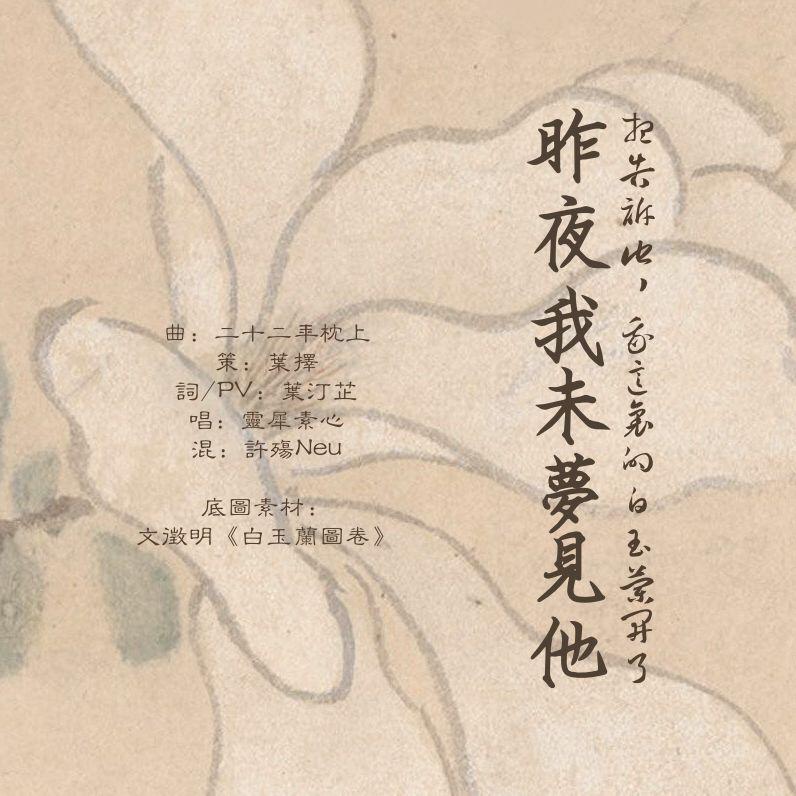 想告訴他，我這裏的白玉蘭開了
昨夜我未夢見他
曲：二十二年枕上
策：葉擇
詞/PV：葉汀芷
唱：靈犀素心
混：許殤Neu
底圖素材：
文徵明《白玉蘭圖卷》